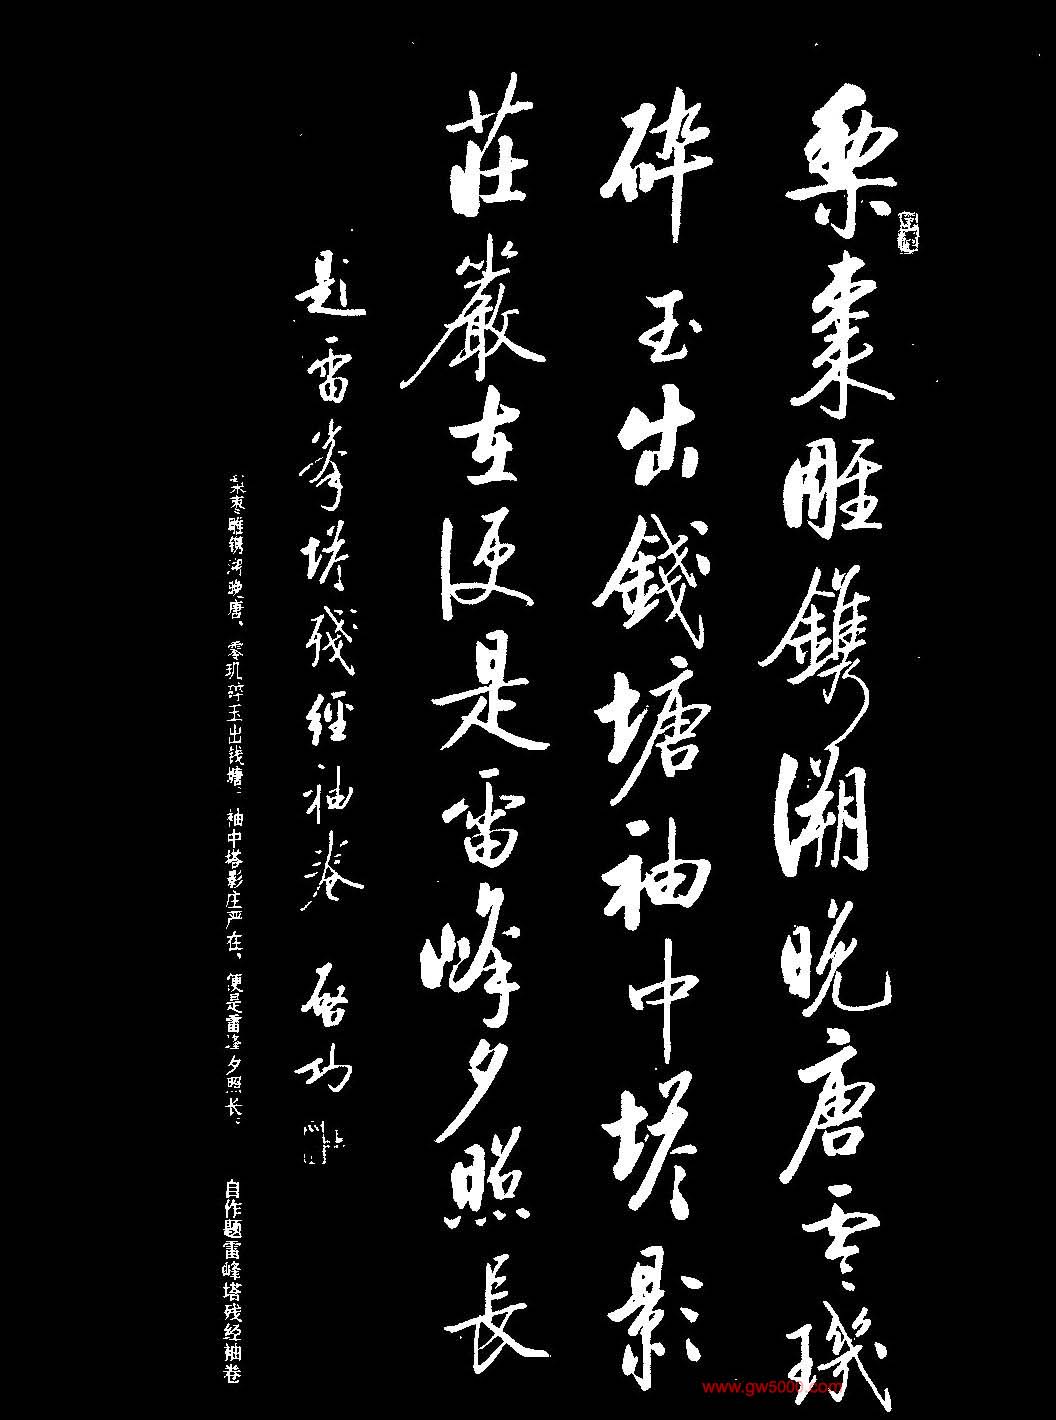 梨棗雕鐫溯晚唐零璣
碎玉出錢塘袖中塔影
莊嚴在便是雷峰夕照長
題雷峯塔殘經袖卷 啓功
梨枣雕镌溯晚唐、零玑碎玉出钱塘。袖中塔影庄严在、便是雷峰夕照长。 自作题雷峰塔残经袖卷
www.gw5000.com